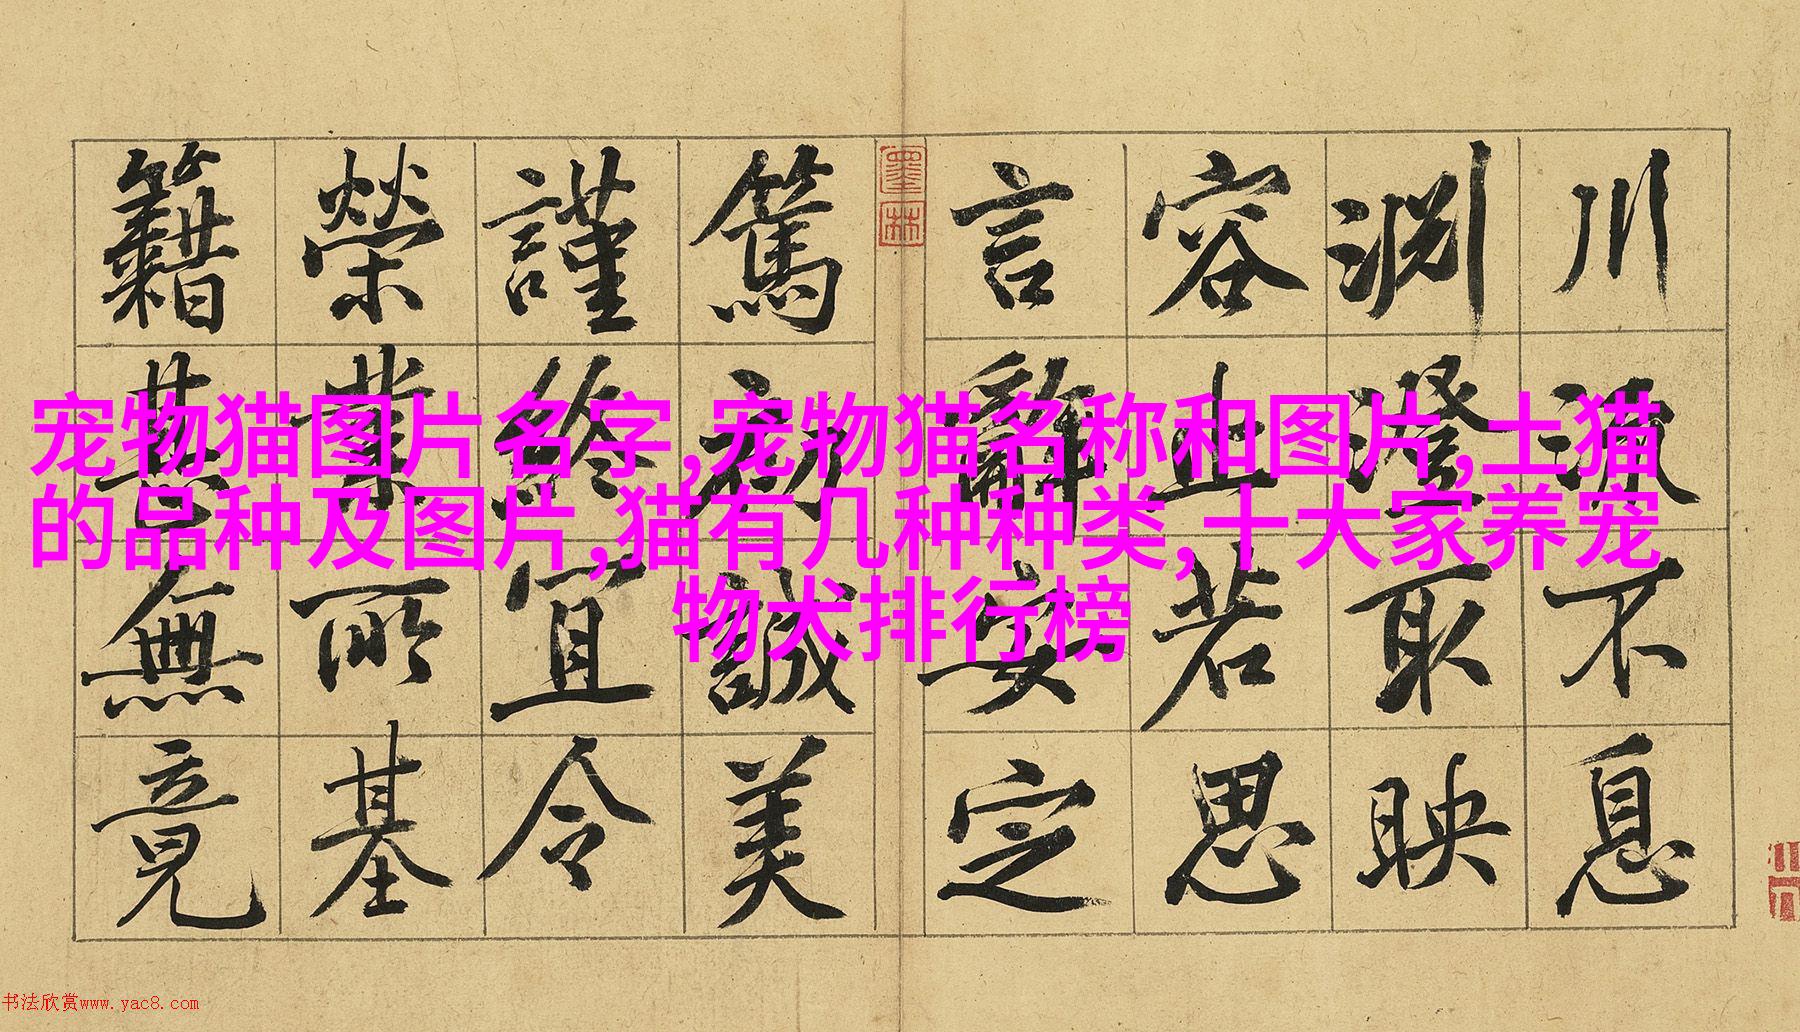 川流不息
淵澄取映
容止若思
言辭安定
墨林
篤初誠美
謹終宜令
榮業所基
籍甚無竟
宠物猫图片名字,宠物猫名称和图片,土猫
的品种及图片,猫有几种种类,十大家养宠
物犬排行榜
书法欣赏www.yac8.com